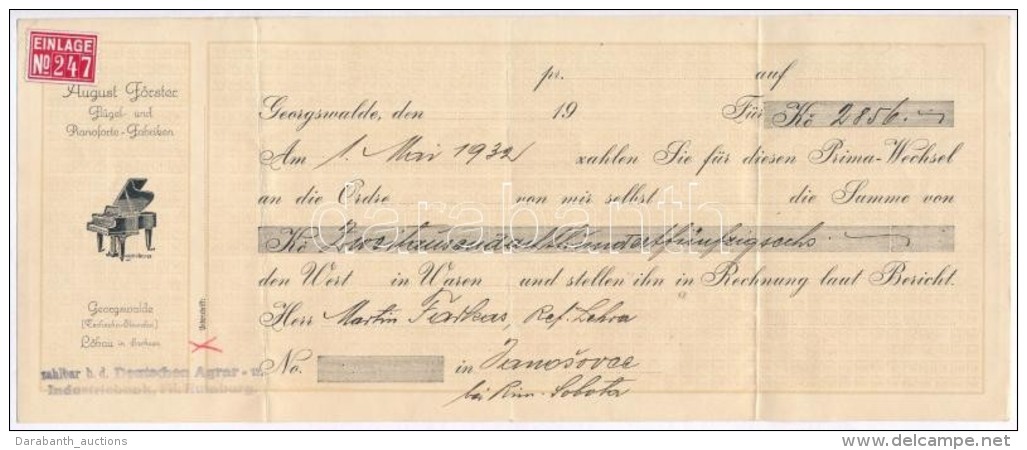 EINLAGE
No 247
August Förster
Flügel- und
Pianoforte-Fabriken
Georgswalde
(Tschecho-Slowakei)
Löbau in Sachsen
Unterschrift:
zahlbar b. d. Deutschen Agrar- u.
Industriebank, Fil. Rumburg.
pr. auf
Georgswalde, den 19 Für Kč 2856.-
Am 1. Mai 1932 zahlen Sie für diesen Prima-Wechsel
an die Ordre von mir selbst die Summe von
Kč Zweitausendachthundertfünfzigsechs.-
den Wert in Waren und stellen ihn in Rechnung laut Bericht.
Herr Martin Farkas, Ref. Lehra
No. in Janošovce
bei Rim. Sobota
darabanth
Darabanth_auctions
www.delcampe.net